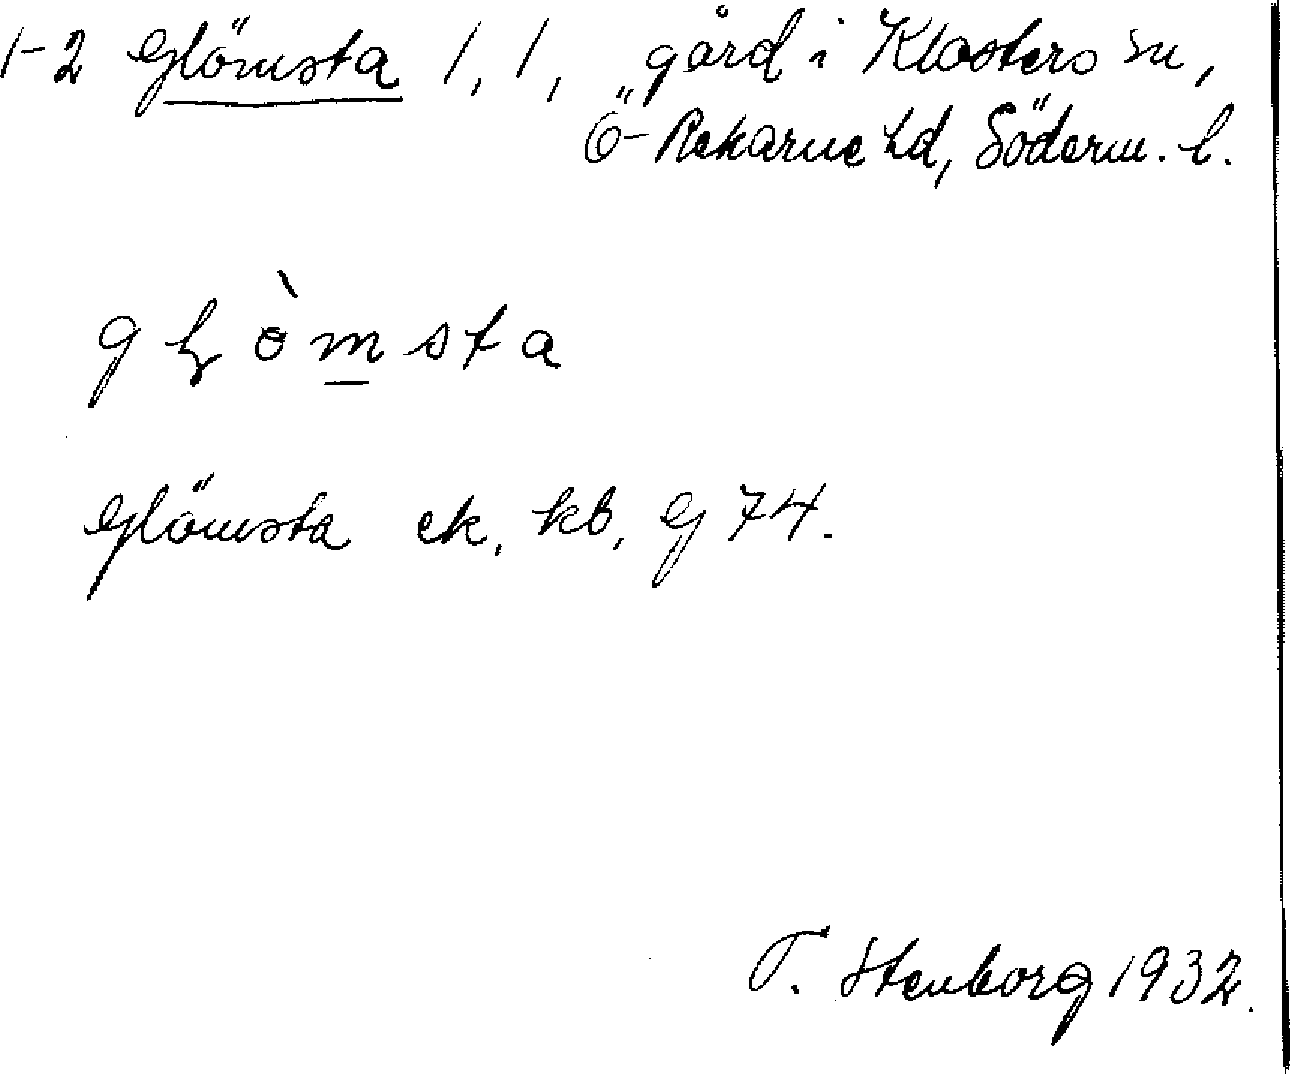 1-2 Glömsta 1, 1, gård i Klosters sn,
Ö-Rekarne hd, Söderm. l.
g ł ö̀ m s t a
Glömsta ek, kb, G 74.
T. Stenborg 1932.